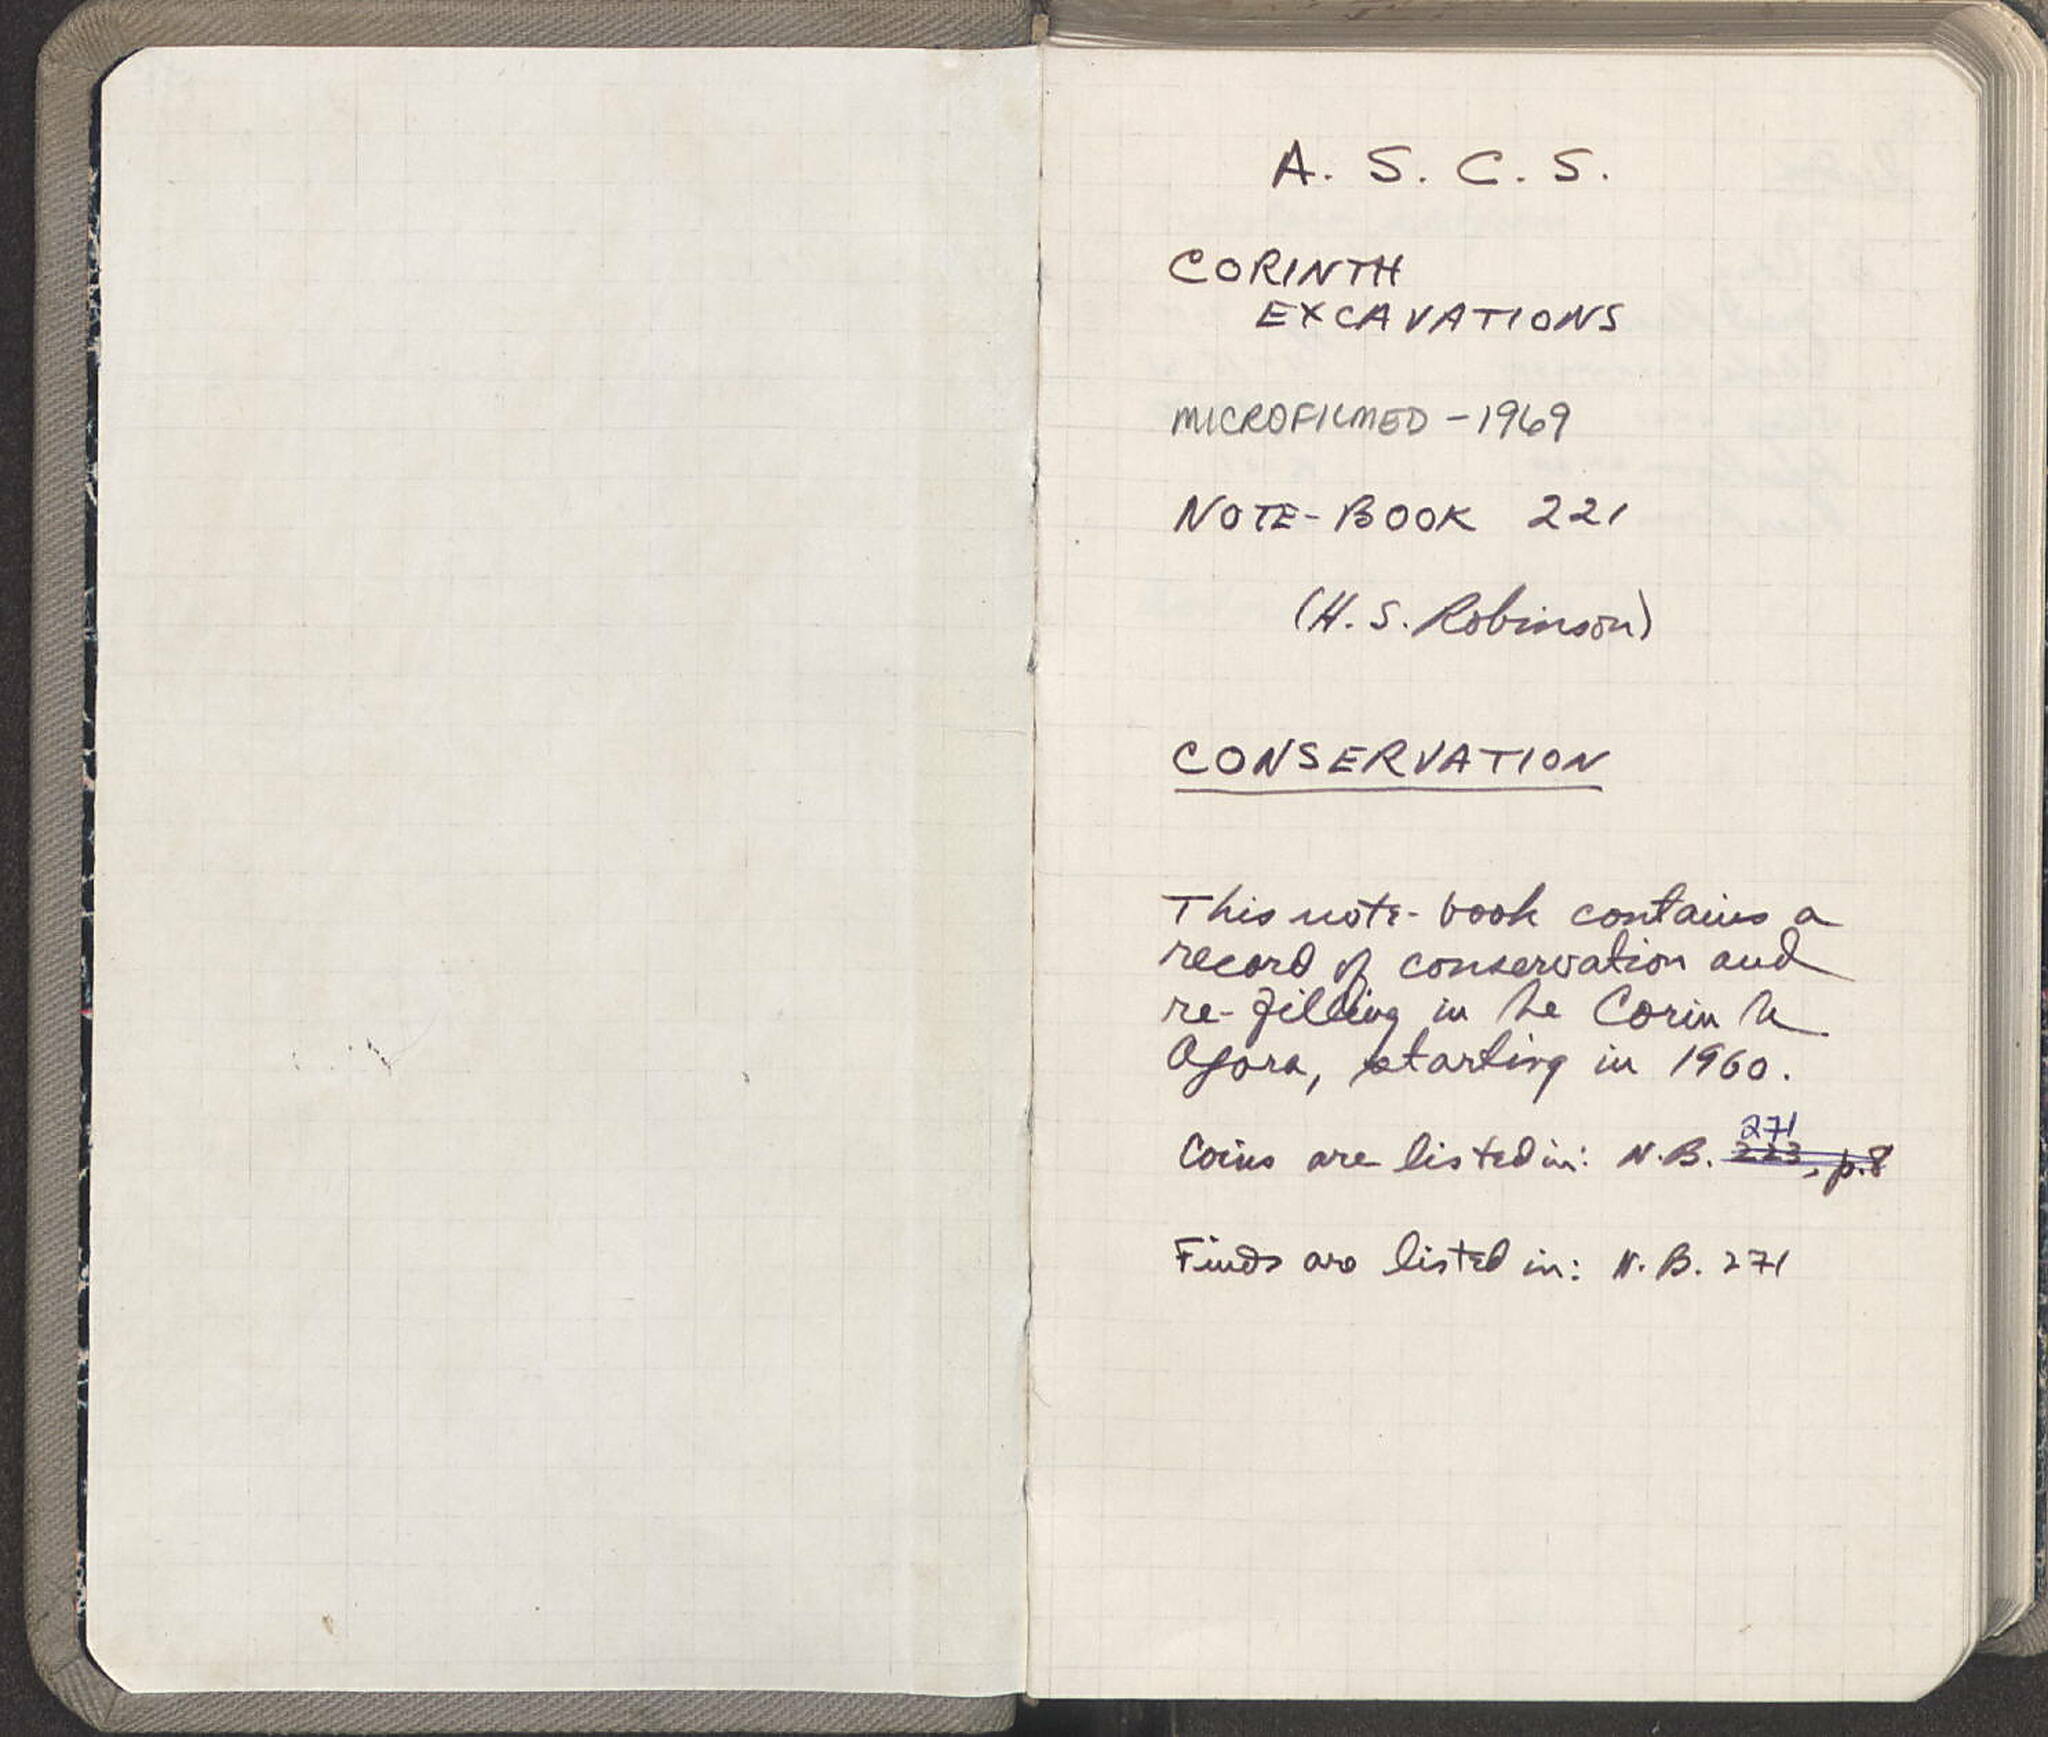 A. S. C. S.
CORINTH
EXCAVATIONS
MICROFILMED - 1969
NOTE-BOOK 221
(H. S. Robinson)
CONSERVATION
This note-book contains a
record of conservation and
re-filling in the Corinth
Agora, starting in 1960.
271
Coins are listed in: N.B. 223, p.8
Finds are listed in: N.B. 271